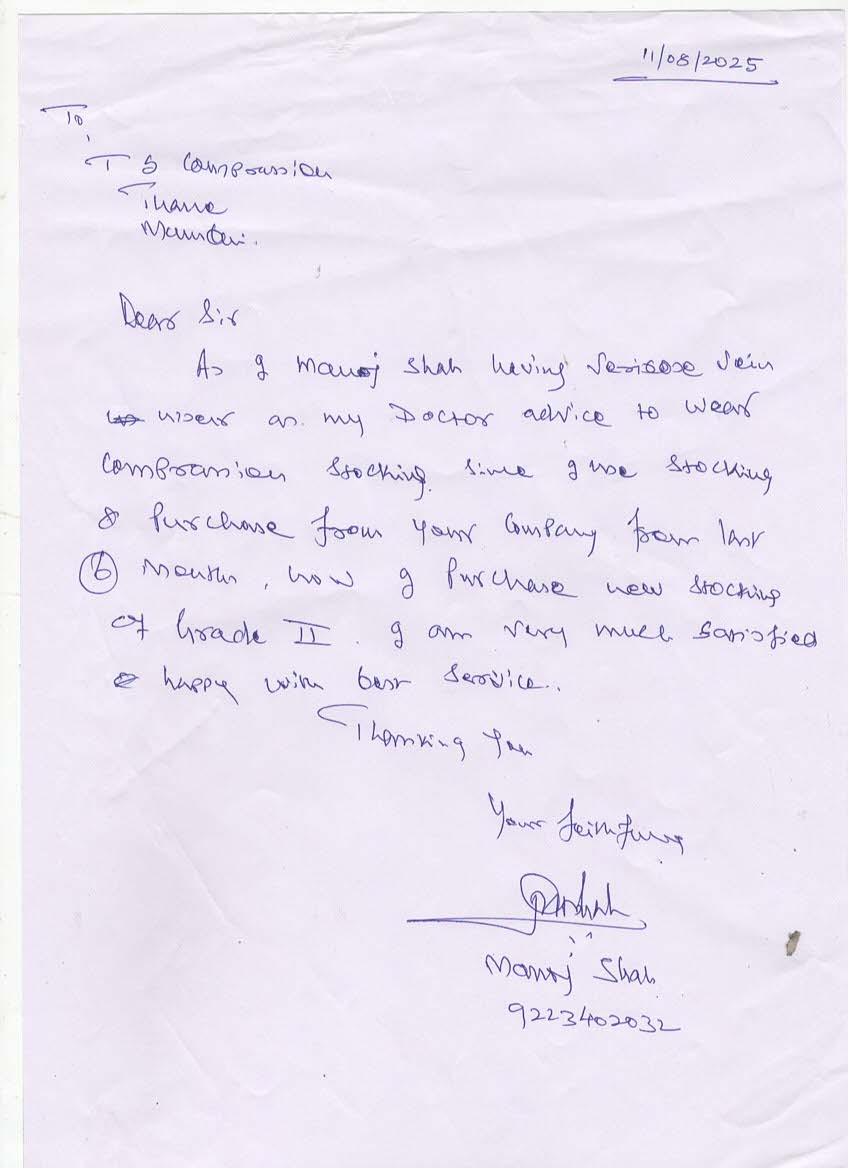 11/08/2025
To,
T S Compression
Thane
Mumbai.
Dear Sir
As I Manoj Shah having Vericose Vein
user as my Doctor advice to wear
Compression Stocking. Since I use Stocking
& Purchase from your Company from last
6 Months, now I Purchase new Stocking
of Grade II. I am very much Satisfied
& happy with best Service..
Thanking You
Your faithfully
Manoj Shah
9223402032